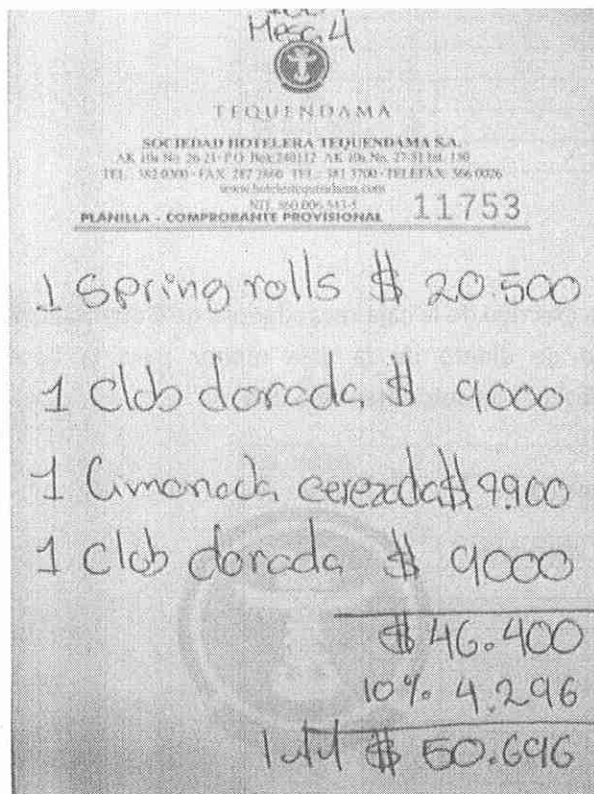 Mesa 4
TEQUENDAMA
SOCIEDAD HOTELERA TEQUENDAMA S.A.
AK 10a No. 26-21 P.O. Box 240112 AK 10a No. 27-51 Int. 150
TEL.: 382 0300 - FAX 287 2860 TEL.: 381 3700 - TELEFAX: 566 0026
www.hotelestequendama.com
NIT. 860.006.543-5
PLANILLA - COMPROBANTE PROVISIONAL 11753
1 Spring rolls $ 20.500
1 Club dorada $ 9000
1 Limonada cerezada $ 7.900
1 Club dorada $ 9000
$ 46.400
10% 4.296
Total $ 50.696